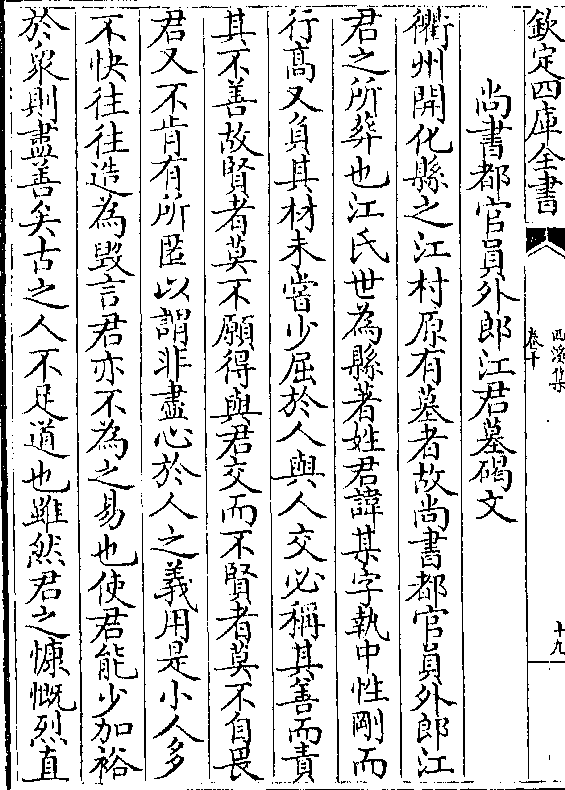 欽定四庫全書
西溪集
卷十
十九
尚書都官員外郎江君墓碣文
衢州開化縣之江村原有墓者故尚書都官員外郎江
君之所葬也江氏世為縣著姓君諱某字執中性剛而
行高又負其材未嘗少屈於人與人交必稱其善而責
其不善故賢者莫不願得與君交而不賢者莫不自畏
君又不肯有所匿以謂非盡心於人之義用是小人多
不快往往造為毁言君亦不為之易也使君能少加裕
於衆則盡善矣古之人不足道也雖然君之慷慨烈直